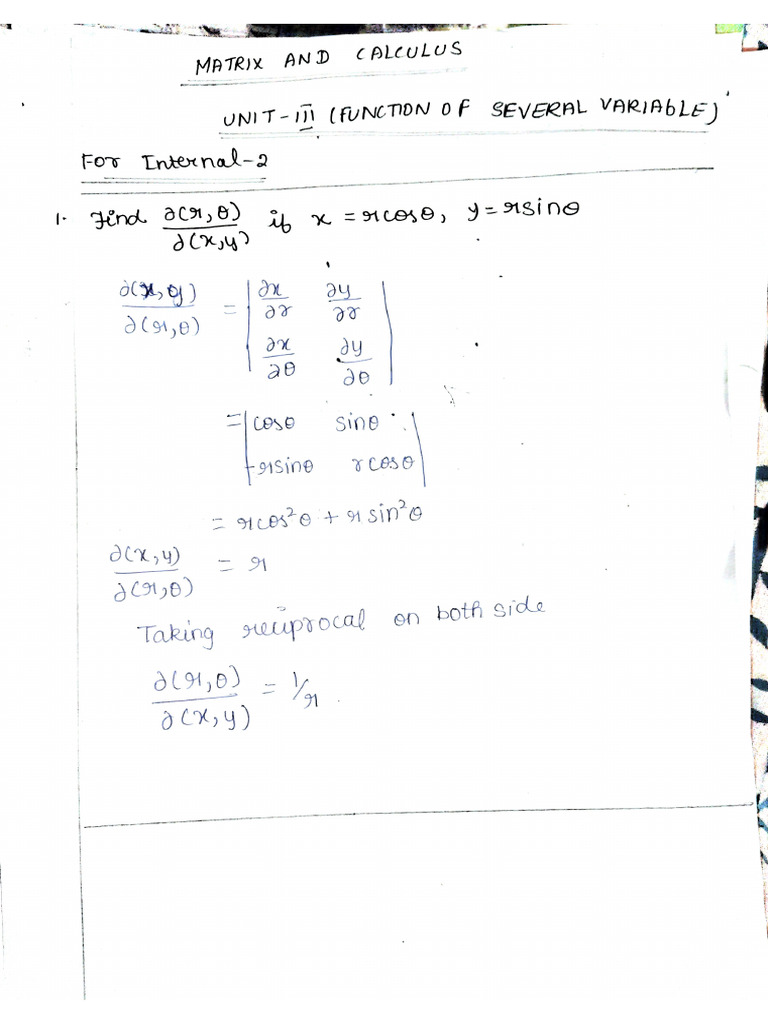 MATRIX AND CALCULUS
UNIT-III (FUNCTION OF SEVERAL VARIABLE)
For Internal-2
1. Find ∂(r,θ)/∂(x,y) if x = rcosθ, y = rsinθ
∂(x,y)/∂(r,θ) = | ∂x/∂r ∂y/∂r |
| ∂x/∂θ ∂y/∂θ |
= | cosθ sinθ |
| -rsinθ rcosθ |
= rcos²θ + rsin²θ
∂(x,y)/∂(r,θ) = r
Taking reciprocal on both side
∂(r,θ)/∂(x,y) = 1/r.